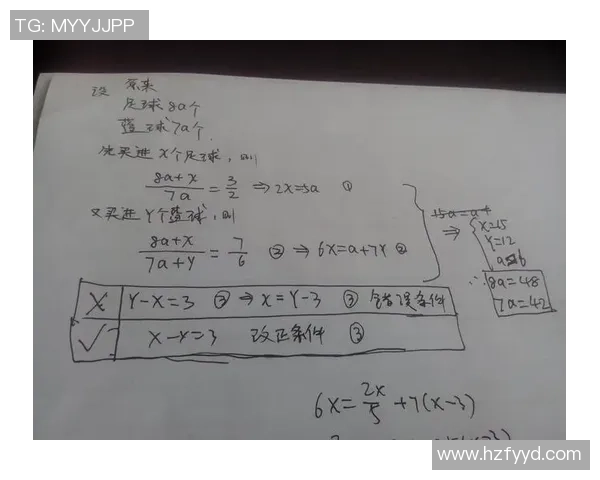 TG: MYYJJPP
设 原来
足球 8a个
篮球 7a个.
先买进 X个足球，则
(8a+x)/(7a) = 3/2 ⇒ 2x=5a ①
又买进 Y个篮球，则
(8a+x)/(7a+y) = 7/6 ② ⇒ 6x=a+7y ②
⇒ { x=15
y=12
a=6
∴ 8a=48
7a=42
X Y-X=3 ③ ⇒ x=Y-3 ③ 错误条件
✓ X-Y=3 改正条件 ③
6x = 2x/5 + 7(x-3)
www.hzfyyd.com